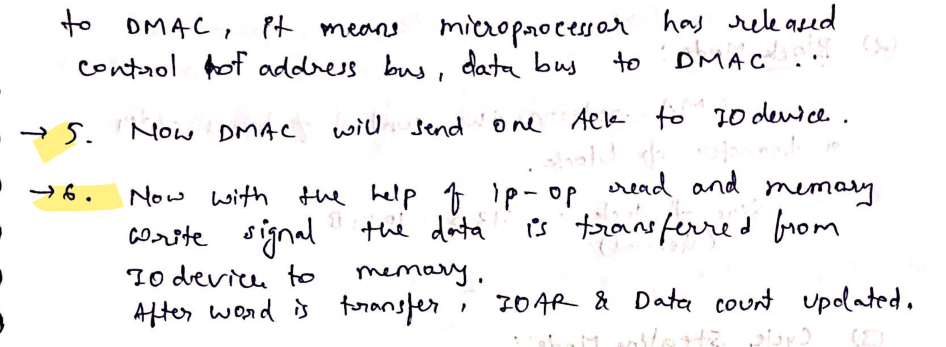 to DMAC, it means microprocessor has released
control of address bus, data bus to DMAC ...
→ 5. Now DMAC will send one Ack to IO device.
→ 6. Now with the help of ip-op read and memory
write signal the data is transferred from
IO device to memory.
After word is transfer, IOAR & Data count updated.